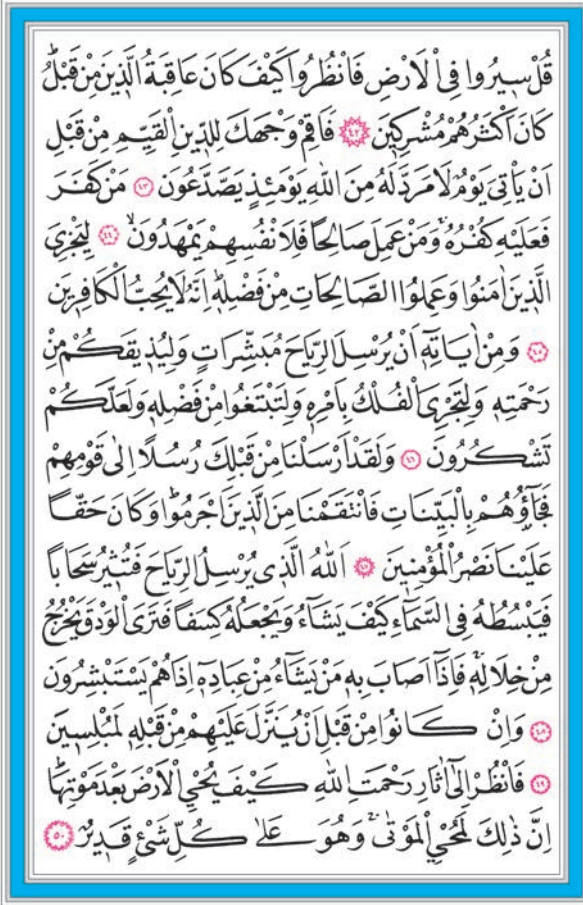 قُلْ سٖيرُوا فِي الْاَرْضِ فَانْظُرُوا كَيْفَ كَانَ عَاقِبَةُ الَّذٖينَ مِنْ قَبْلُؕ
كَانَ اَكْثَرُهُمْ مُشْرِكٖينَ ﴿٤٢﴾ فَاَقِمْ وَجْهَكَ لِلدّٖينِ الْقَيِّمِ مِنْ قَبْلِ
اَنْ يَأْتِيَ يَوْمٌ لَا مَرَدَّ لَهُ مِنَ اللّٰهِ يَوْمَئِذٍ يَصَّدَّعُونَ ﴿٤٣﴾ مَنْ كَفَرَ
فَعَلَيْهِ كُفْرُهُۚ وَمَنْ عَمِلَ صَالِحًا فَلِاَنْفُسِهِمْ يَمْهَدُونَۙ ﴿٤٤﴾ لِيَجْزِيَ
الَّذٖينَ اٰمَنُوا وَعَمِلُوا الصَّالِحَاتِ مِنْ فَضْلِهٖؕ اِنَّهُ لَا يُحِبُّ الْكَافِرٖينَ
﴿٤٥﴾ وَمِنْ اٰيَاتِهٖٓ اَنْ يُرْسِلَ الرِّيَاحَ مُبَشِّرَاتٍ وَلِيُذٖيقَكُمْ مِنْ
رَحْمَتِهٖ وَلِتَجْرِيَ الْفُلْكُ بِاَمْرِهٖ وَلِتَبْتَغُوا مِنْ فَضْلِهٖ وَلَعَلَّكُمْ
تَشْكُرُونَ ﴿٤٦﴾ وَلَقَدْ اَرْسَلْنَا مِنْ قَبْلِكَ رُسُلًا اِلٰى قَوْمِهِمْ
فَجَٓاؤُ۫هُمْ بِالْبَيِّنَاتِ فَانْتَقَمْنَا مِنَ الَّذٖينَ اَجْرَمُواؕ وَكَانَ حَقًّا
عَلَيْنَا نَصْرُ الْمُؤْمِنٖينَ ﴿٤٧﴾ اَللّٰهُ الَّذٖي يُرْسِلُ الرِّيَاحَ فَتُثٖيرُ سَحَابًا
فَيَبْسُطُهُ فِي السَّمَٓاءِ كَيْفَ يَشَٓاءُ وَيَجْعَلُهُ كِسَفًا فَتَرَى الْوَدْقَ يَخْرُجُ
مِنْ خِلَالِهٖۚ فَاِذَٓا اَصَابَ بِهٖ مَنْ يَشَٓاءُ مِنْ عِبَادِهٖٓ اِذَا هُمْ يَسْتَبْشِرُونَ
﴿٤٨﴾ وَاِنْ كَانُوا مِنْ قَبْلِ اَنْ يُنَزَّلَ عَلَيْهِمْ مِنْ قَبْلِهٖ لَمُبْلِسٖينَ
﴿٤٩﴾ فَانْظُرْ اِلٰٓى اٰثَارِ رَحْمَتِ اللّٰهِ كَيْفَ يُحْيِ الْاَرْضَ بَعْدَ مَوْتِهَاؕ
اِنَّ ذٰلِكَ لَمُحْيِ الْمَوْتٰىۚ وَهُوَ عَلٰى كُلِّ شَيْءٍ قَدٖيرٌ ﴿٥٠﴾